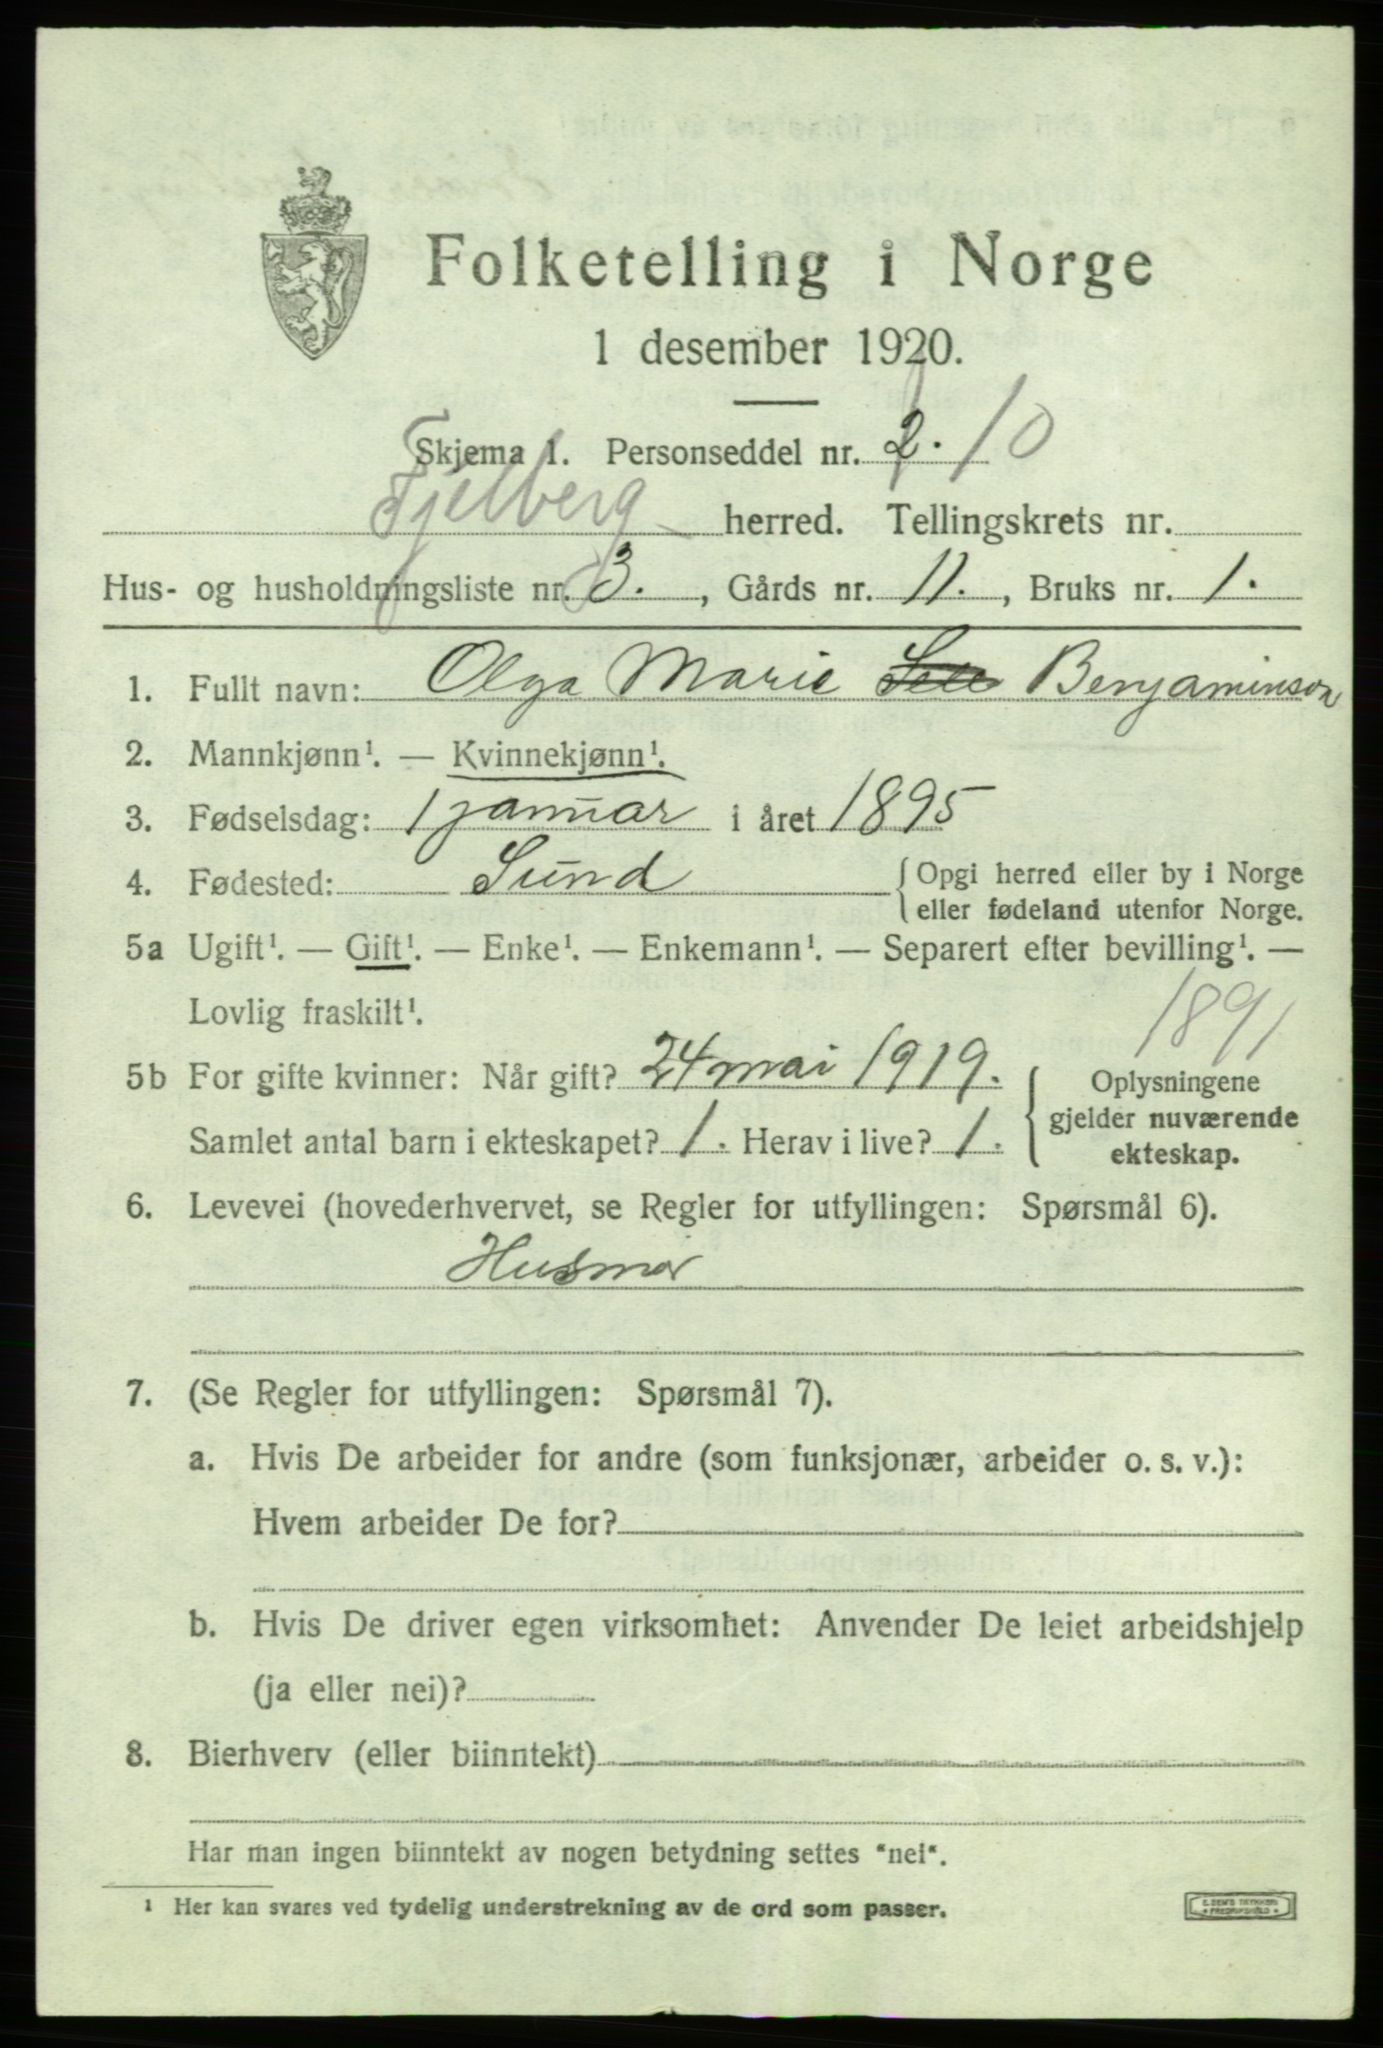 Folketelling i Norge
1 desember 1920.
Skjema 1. Personseddel nr. 2. 10
Fjelberg herred. Tellingskrets nr.
Hus- og husholdningsliste nr. 3. , Gårds nr. 11. , Bruks nr. 1.
1. Fullt navn: Olga Marie Benjaminson
2. Mannkjønn¹. — Kvinnekjønn¹.
3. Fødselsdag: 1 januar i året 1895
4. Fødested: Sund { Opgi herred eller by i Norge
eller fødeland utenfor Norge.
5a Ugift¹. — Gift¹. — Enke¹. — Enkemann¹. — Separert efter bevilling¹. —
Lovlig fraskilt¹.
1891
5b For gifte kvinner: Når gift? 24 mai 1919. { Oplysningene
gjelder nuværende
Samlet antal barn i ekteskapet? 1. Herav i live? 1.
ekteskap.
6. Levevei (hovederhvervet, se Regler for utfyllingen: Spørsmål 6).
Husmor
7. (Se Regler for utfyllingen: Spørsmål 7).
a. Hvis De arbeider for andre (som funksjonær, arbeider o. s. v.):
Hvem arbeider De for?
b. Hvis De driver egen virksomhet: Anvender De leiet arbeidshjelp
(ja eller nei)?
8. Bierhverv (eller biinntekt)
Har man ingen biinntekt av nogen betydning settes "nei".
¹ Her kan svares ved tydelig understrekning av de ord som passer.